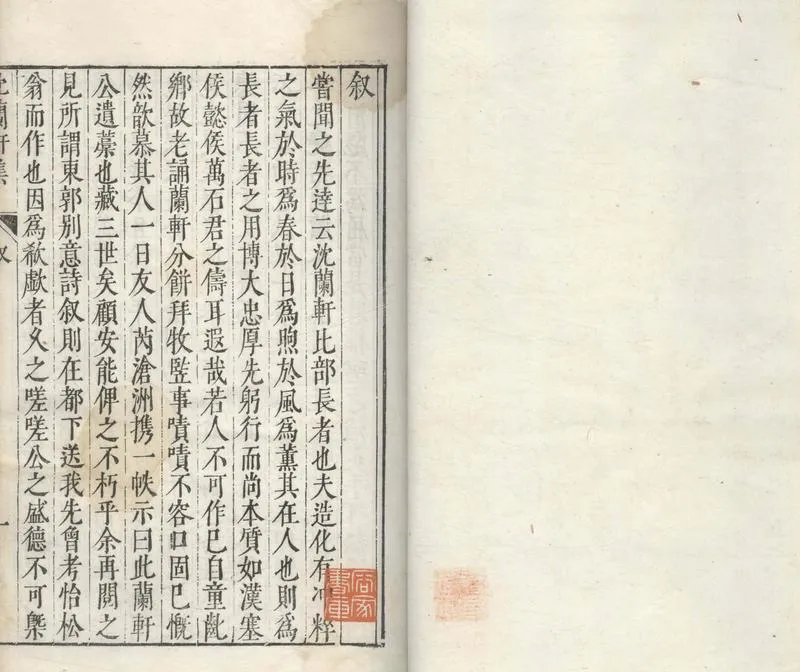 叙
嘗聞之先達云沈蘭軒比部長者也夫造化有冲粹
之氣於時爲春於日爲煦於風爲薰其在人也則爲
長者長者之用博大忠厚先躬行而尚本質如漢塞
侯懿侯萬石君之儔耳遐哉若人不可作已自童齓
鄉故老誦蘭軒分餅拜牧豎事嘖嘖不容口固已慨
然歆慕其人一日友人芮滄洲携一帙示曰此蘭軒
公遺藁也藏三世矣顧安能俾之不朽乎余再閱之
見所謂東郭別意詩叙則在都下送我先曾考怡松
翁而作也因爲欷歔者久之嗟嗟公之盛德不可槩
沈蘭軒集
叙
一